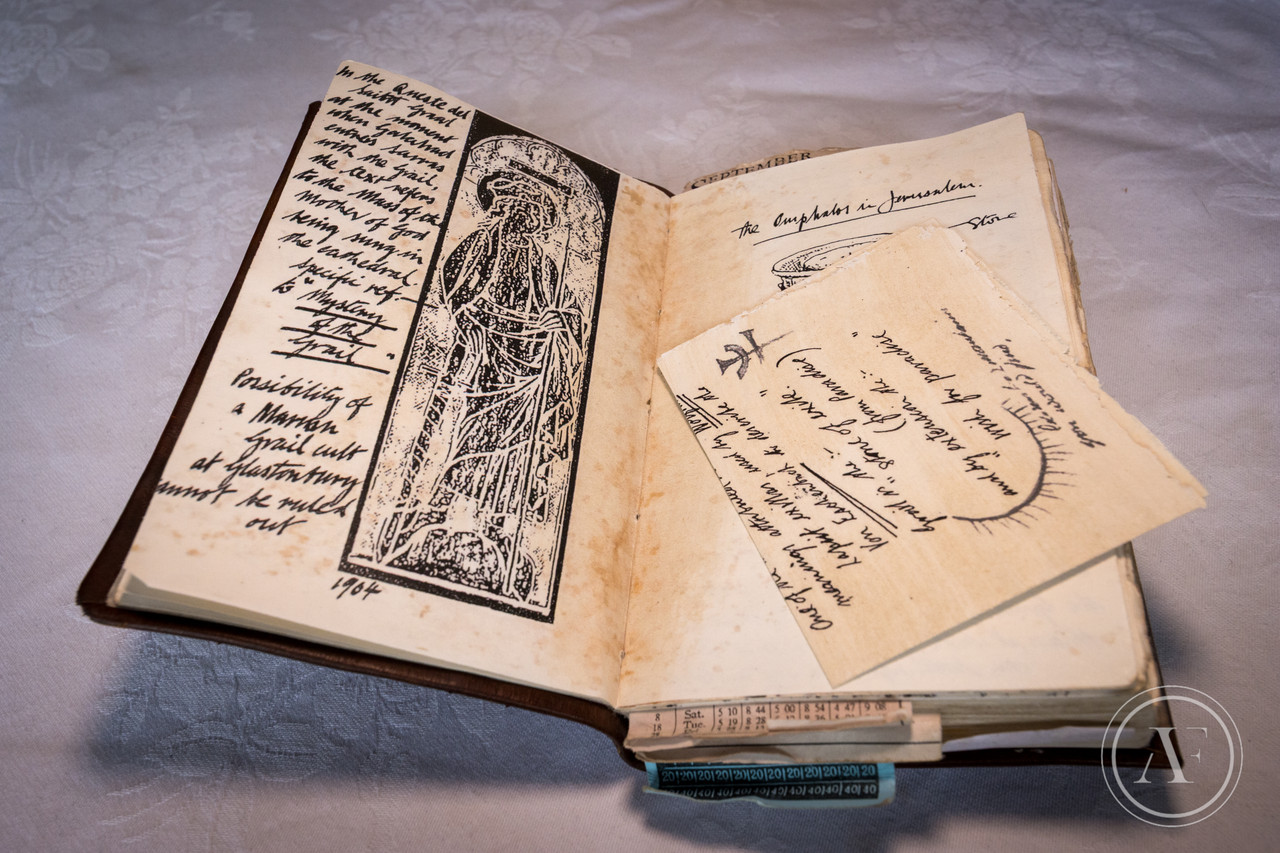 In the Queste del
Saint Graal
at the moment
when Galahad
enters Sarras
with the Grail,
the text refers
to the Mass of the
Mother of God
being sung in
the cathedral
specific ref.
to "Mystery
of the
Grail".
Possibility of
a Marian
Grail cult
at Glastonbury
cannot be ruled
out
1904
SEPTEMBER
the Omphalos in Jerusalem.
Stone
One of the
meanings attached
Lapsit exillas used by Wolfram
Von Eschenbach to describe the
Grail is "the stone of exile"
(from Paradise)
and, by extension, the
"wish for paradise"
8 Sat. 5 10 8 44 5 00 8 54 4 47 9 08
18 Tue. 5 19 8 28
20|20|20|20|20|20|20|20|20|20|20
40|40
AF